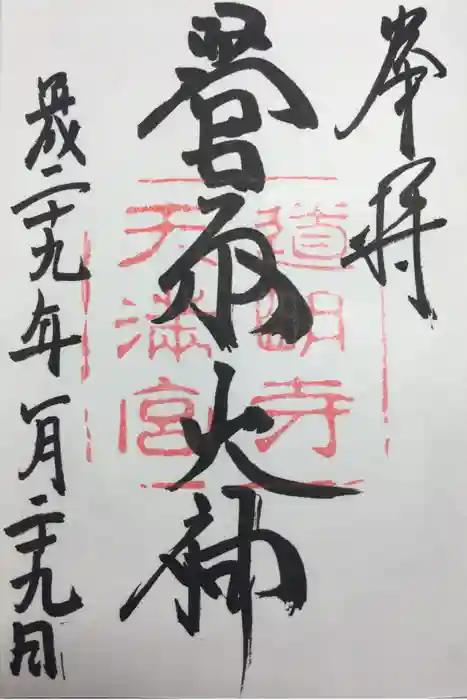 奉拝
菅原大神
平成二十九年一月二十九日
道明寺
天満宮